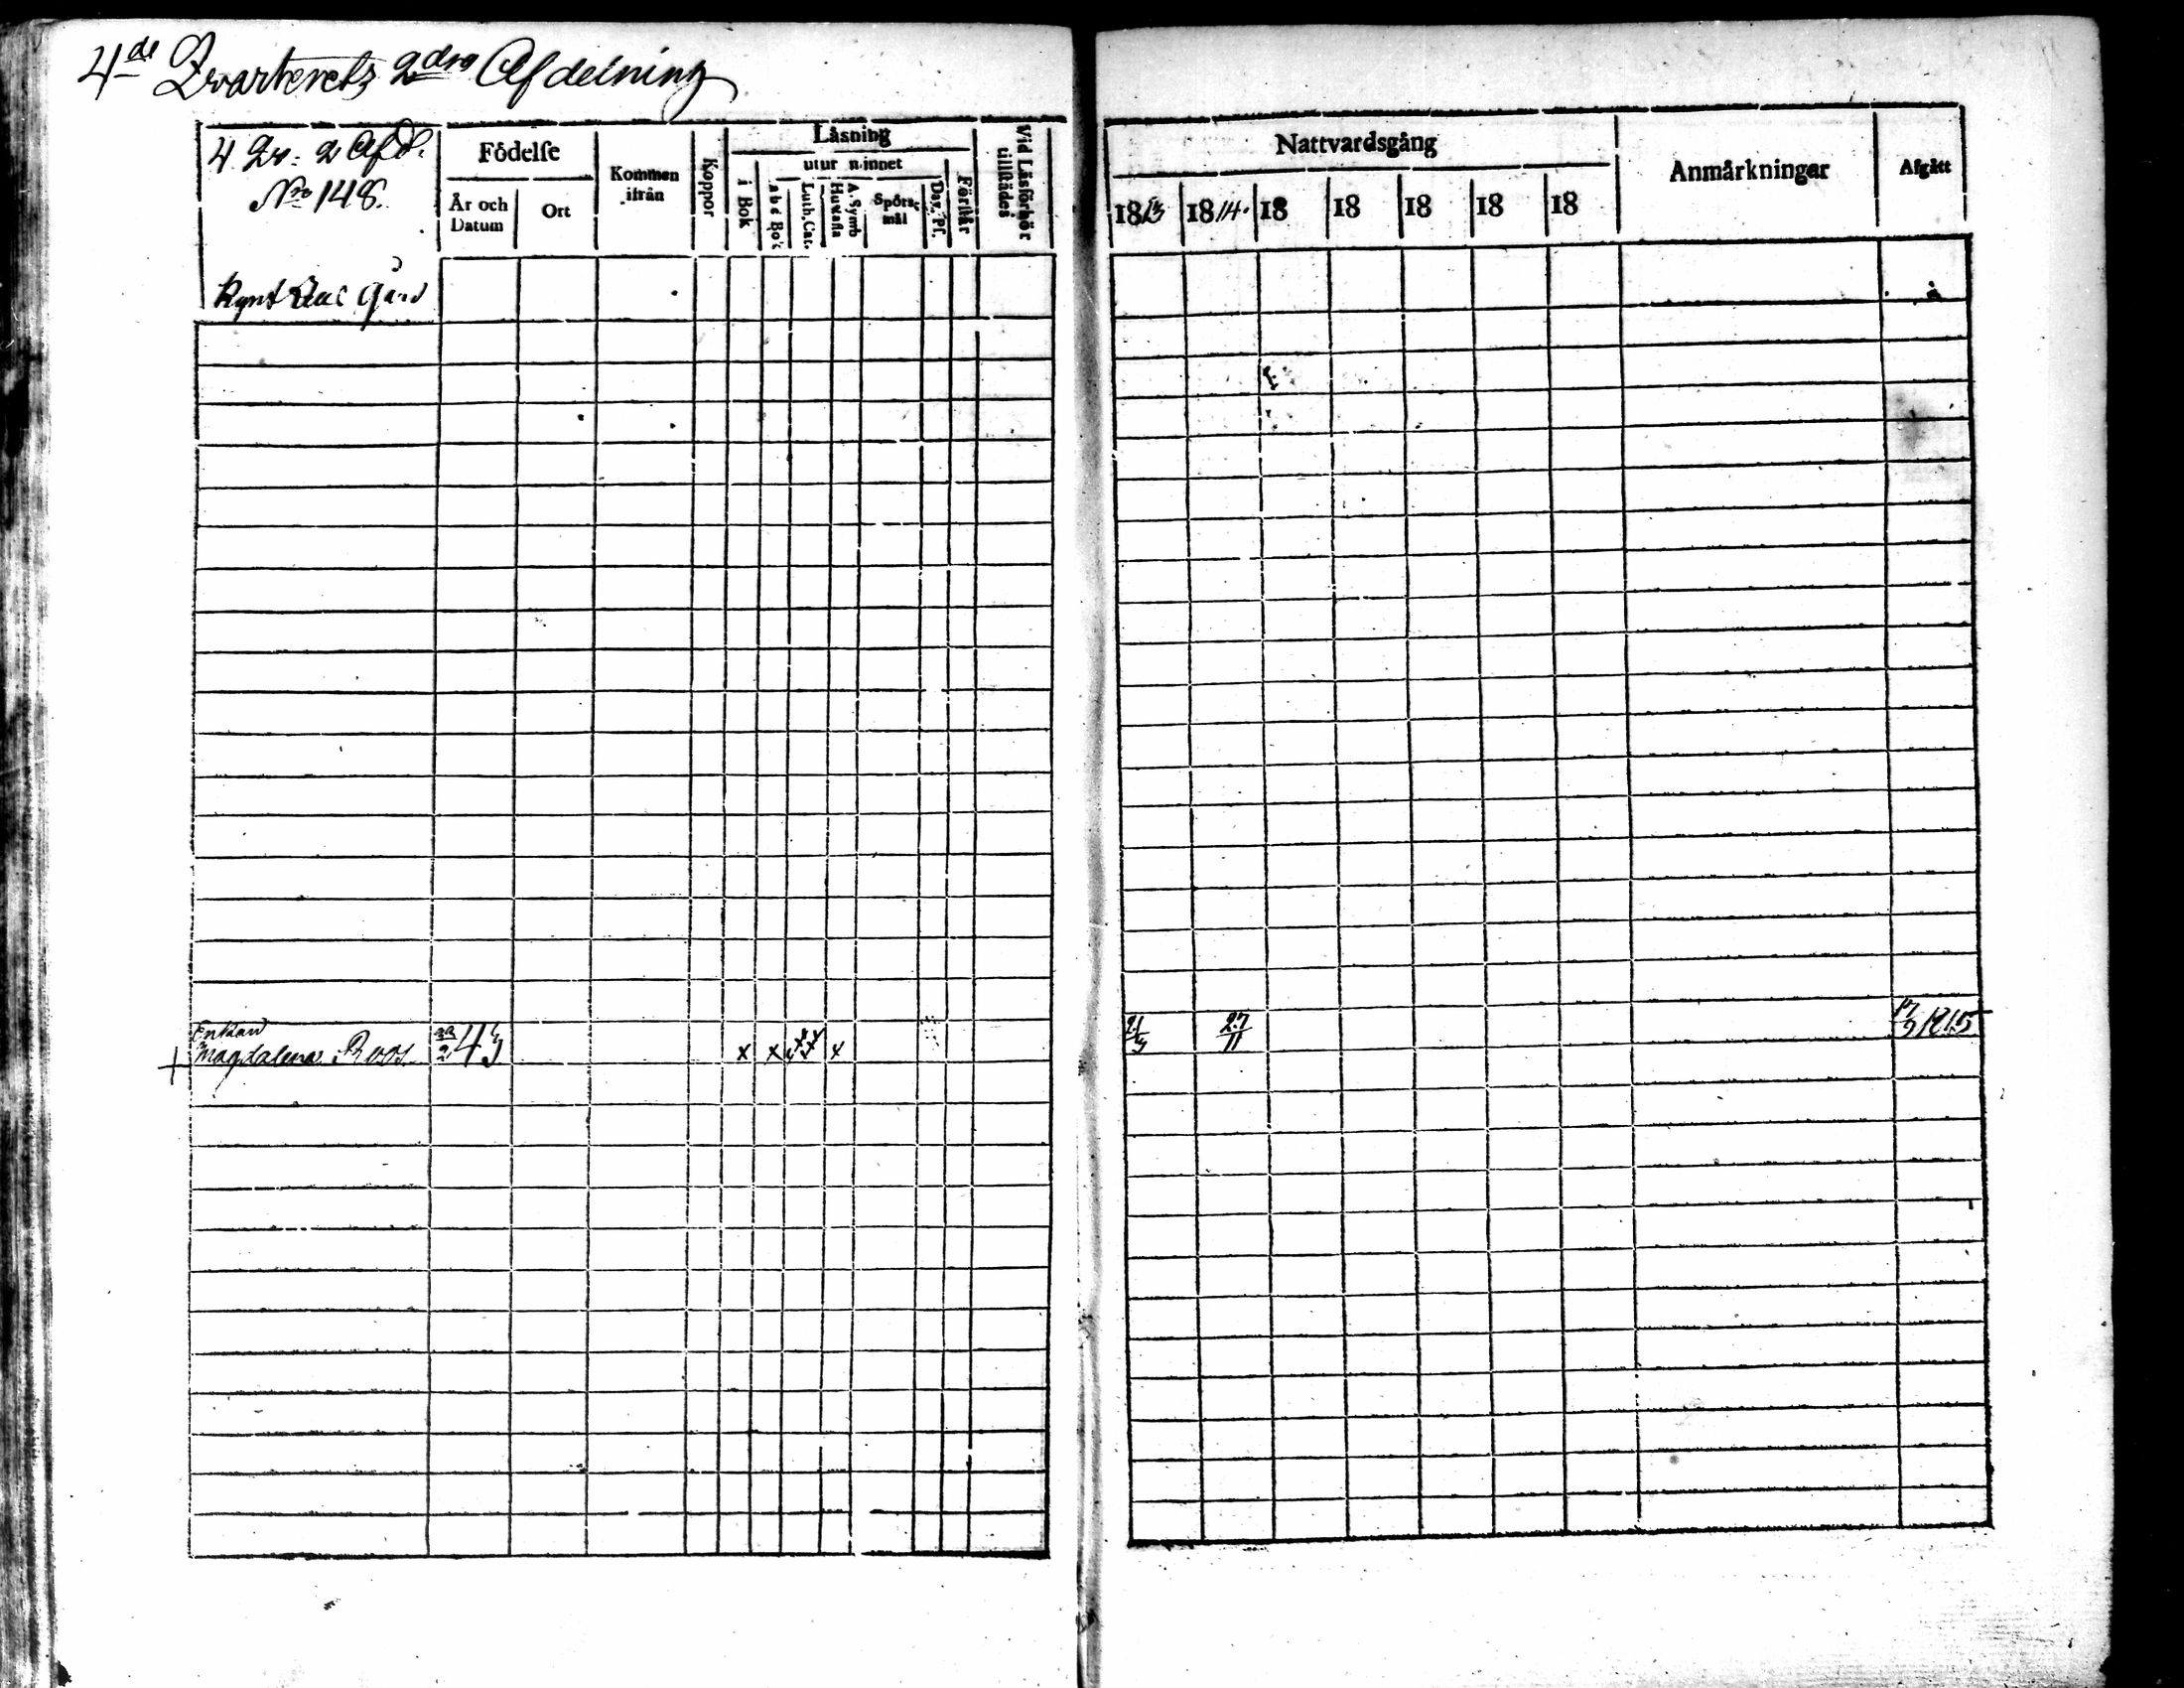 4de Qvarterets 2dra Afdelning
4 Qv: 2 Afd.
No 148.
Födelse
År och Datum
Ort
Kommen ifrån
Koppor
Läsning
i Bok
utur minnet
a b c Bok
Luth. Cat.
Hustafla
A. Symb
Spörsmål
Dav. Ps.
Förstår
Vid Läsförhör tillstädes
Nattvardsgång
1813 1814. 18 18 18 18 18
Anmärkningar
Afgått
Gård
Enkan
+ Magdalena Roos 23/2 43 x x x 21/3 27/11 17/3 1815